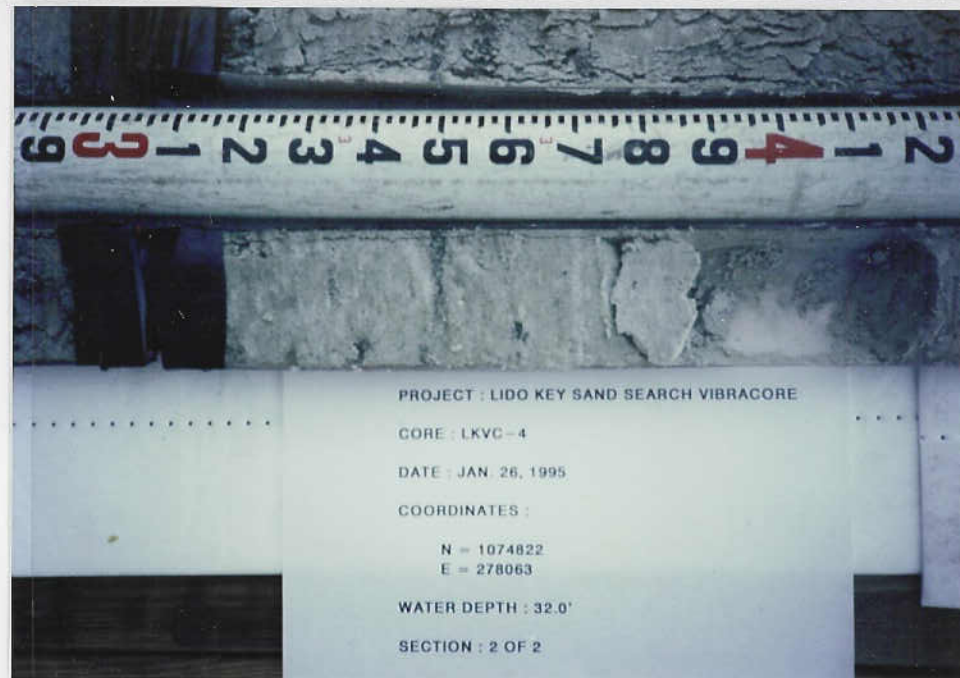 9 3 1 2 3 3 4 5 6 3 7 8 9 4 1 2
PROJECT : LIDO KEY SAND SEARCH VIBRACORE
CORE : LKVC-4
DATE : JAN. 26, 1995
COORDINATES :
N = 1074822
E = 278063
WATER DEPTH : 32.0'
SECTION : 2 OF 2